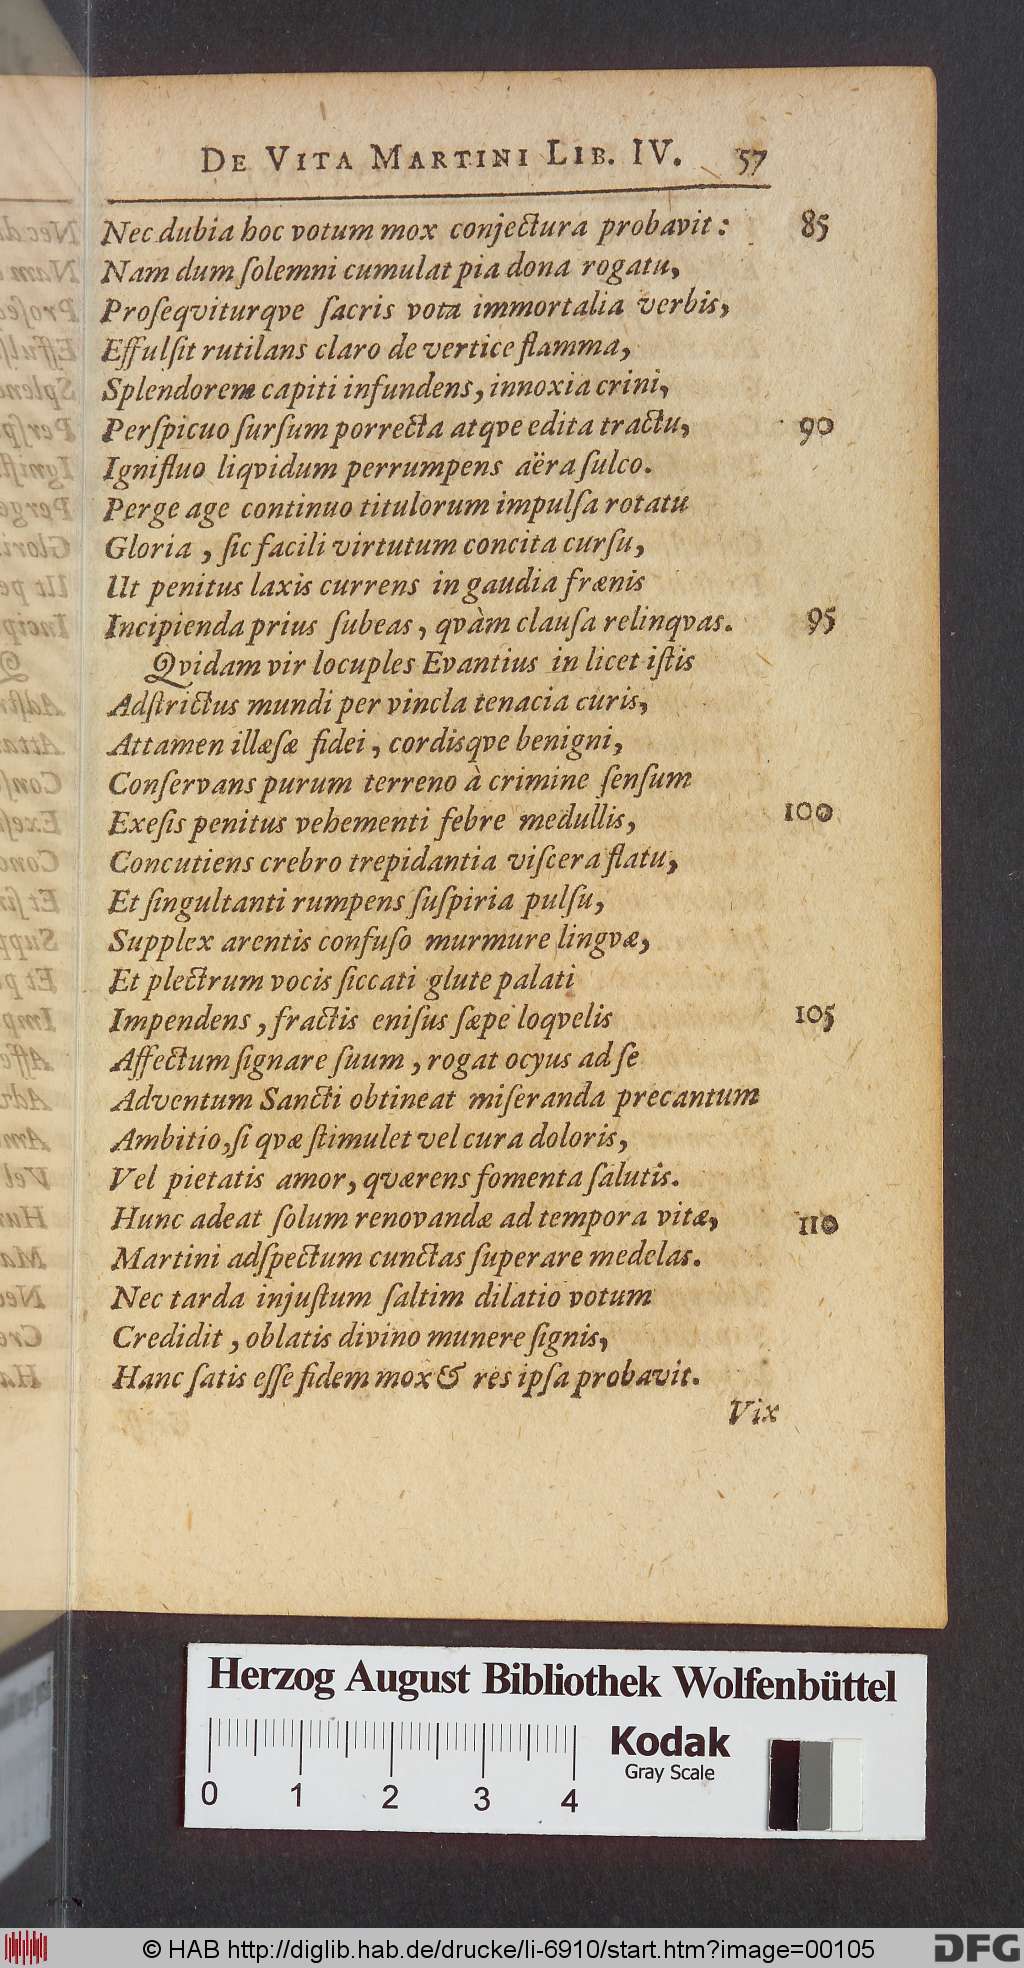 DE VITA MARTINI LIB. IV. 57
Nec dubia hoc votum mox conjectura probavit: 85
Nam dum ſolemni cumulat pia dona rogatu,
Proſeqviturqve ſacris vota immortalia verbis,
Effulſit rutilans claro de vertice flamma,
Splendorem capiti infundens, innoxia crini,
Perſpicuo ſurſum porrecta atqve edita tractu, 90
Ignifluo liqvidum perrumpens aëra ſulco.
Perge age continuo titulorum impulſa rotatu
Gloria, ſic facili virtutum concita curſu,
Ut penitus laxis currens in gaudia frænis
Incipienda prius ſubeas, qvàm clauſa relinqvas. 95
Qvidam vir locuples Evantius in licet iſtis
Adſtrictus mundi per vincla tenacia curis,
Attamen illæſæ fidei, cordisqve benigni,
Conſervans purum terreno à crimine ſenſum
Exeſis penitus vehementi febre medullis, 100
Concutiens crebro trepidantia viſcera flatu,
Et ſingultanti rumpens ſuſpiria pulſu,
Supplex arentis confuſo murmure lingvæ,
Et plectrum vocis ſiccati glute palati
Impendens, fractis eniſus ſæpe loqvelis 105
Affectum ſignare ſuum, rogat ocyus ad ſe
Adventum Sancti obtineat miſeranda precantum
Ambitio, ſi qvæ ſtimulet vel cura doloris,
Vel pietatis amor, qværens fomenta ſalutis.
Hunc adeat ſolum renovandæ ad tempora vitæ, 110
Martini adſpectum cunctas ſuperare medelas.
Nec tarda injuſtum ſaltim dilatio votum
Credidit, oblatis divino munere ſignis,
Hanc ſatis eſſe fidem mox & res ipſa probavit.
Vix
Herzog August Bibliothek Wolfenbüttel
0 1 2 3 4
Kodak
Gray Scale
© HAB http://diglib.hab.de/drucke/li-6910/start.htm?image=00105
DFG